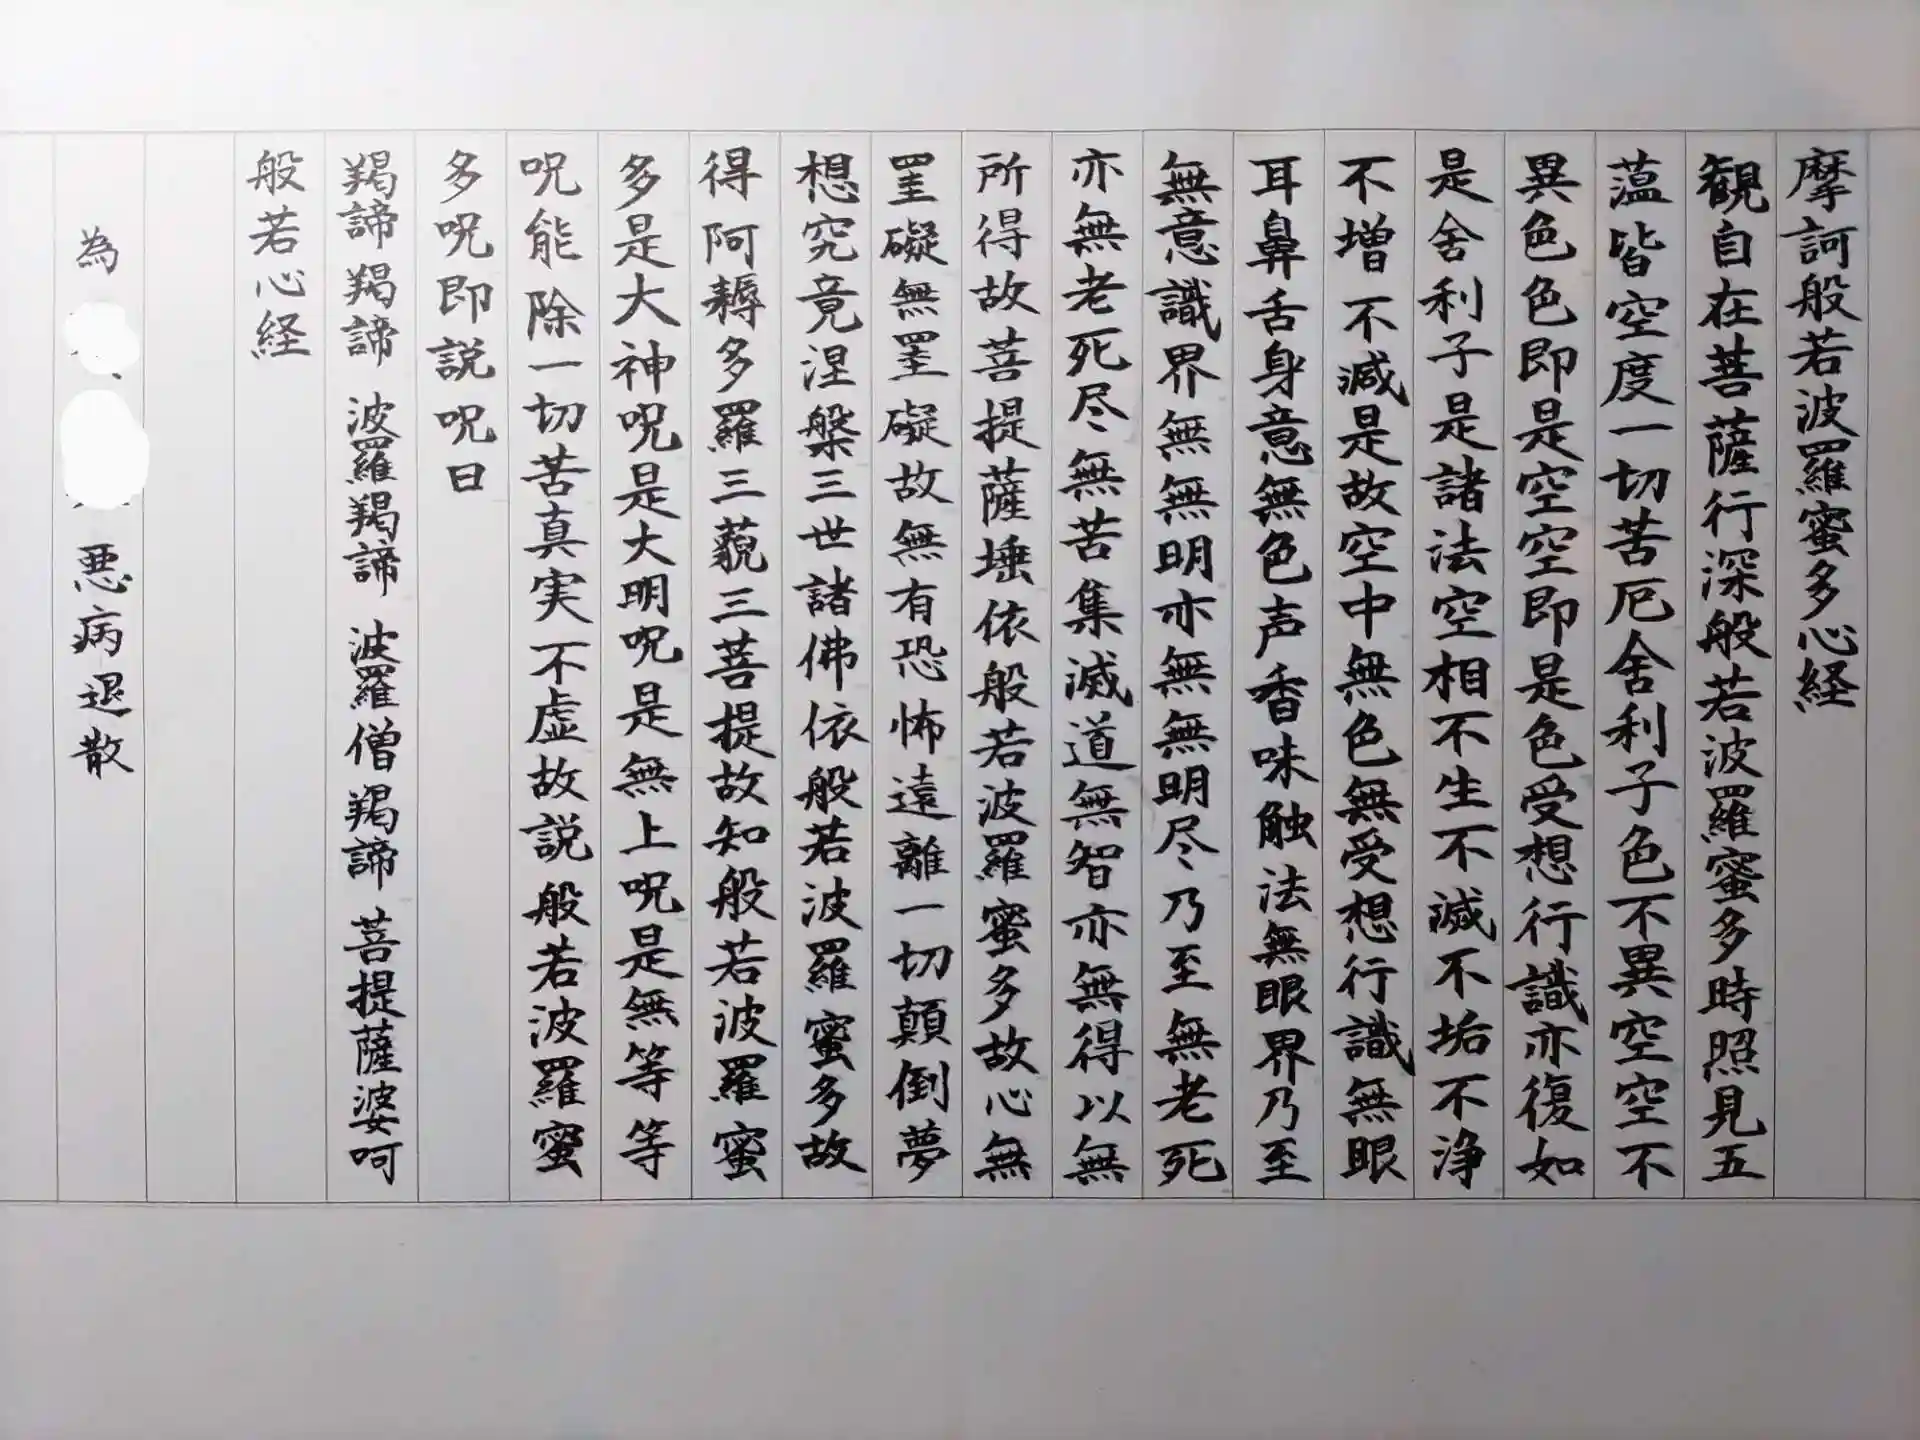 摩訶般若波羅蜜多心経
観自在菩薩行深般若波羅蜜多時照見五
薀皆空度一切苦厄舎利子色不異空空不
異色色即是空空即是色受想行識亦復如
是舎利子是諸法空相不生不滅不垢不浄
不増不減是故空中無色無受想行識無眼
耳鼻舌身意無色声香味触法無眼界乃至
無意識界無無明亦無無明尽乃至無老死
亦無老死尽無苦集滅道無智亦無得以無
所得故菩提薩埵依般若波羅蜜多故心無
罣礙無罣礙故無有恐怖遠離一切顛倒夢
想究竟涅槃三世諸佛依般若波羅蜜多故
得阿耨多羅三藐三菩提故知般若波羅蜜
多是大神呪是大明呪是無上呪是無等等
呪能除一切苦真実不虚故説般若波羅蜜
多呪即説呪曰
羯諦羯諦 波羅羯諦 波羅僧羯諦 菩提薩婆呵
般若心経
為 悪病退散